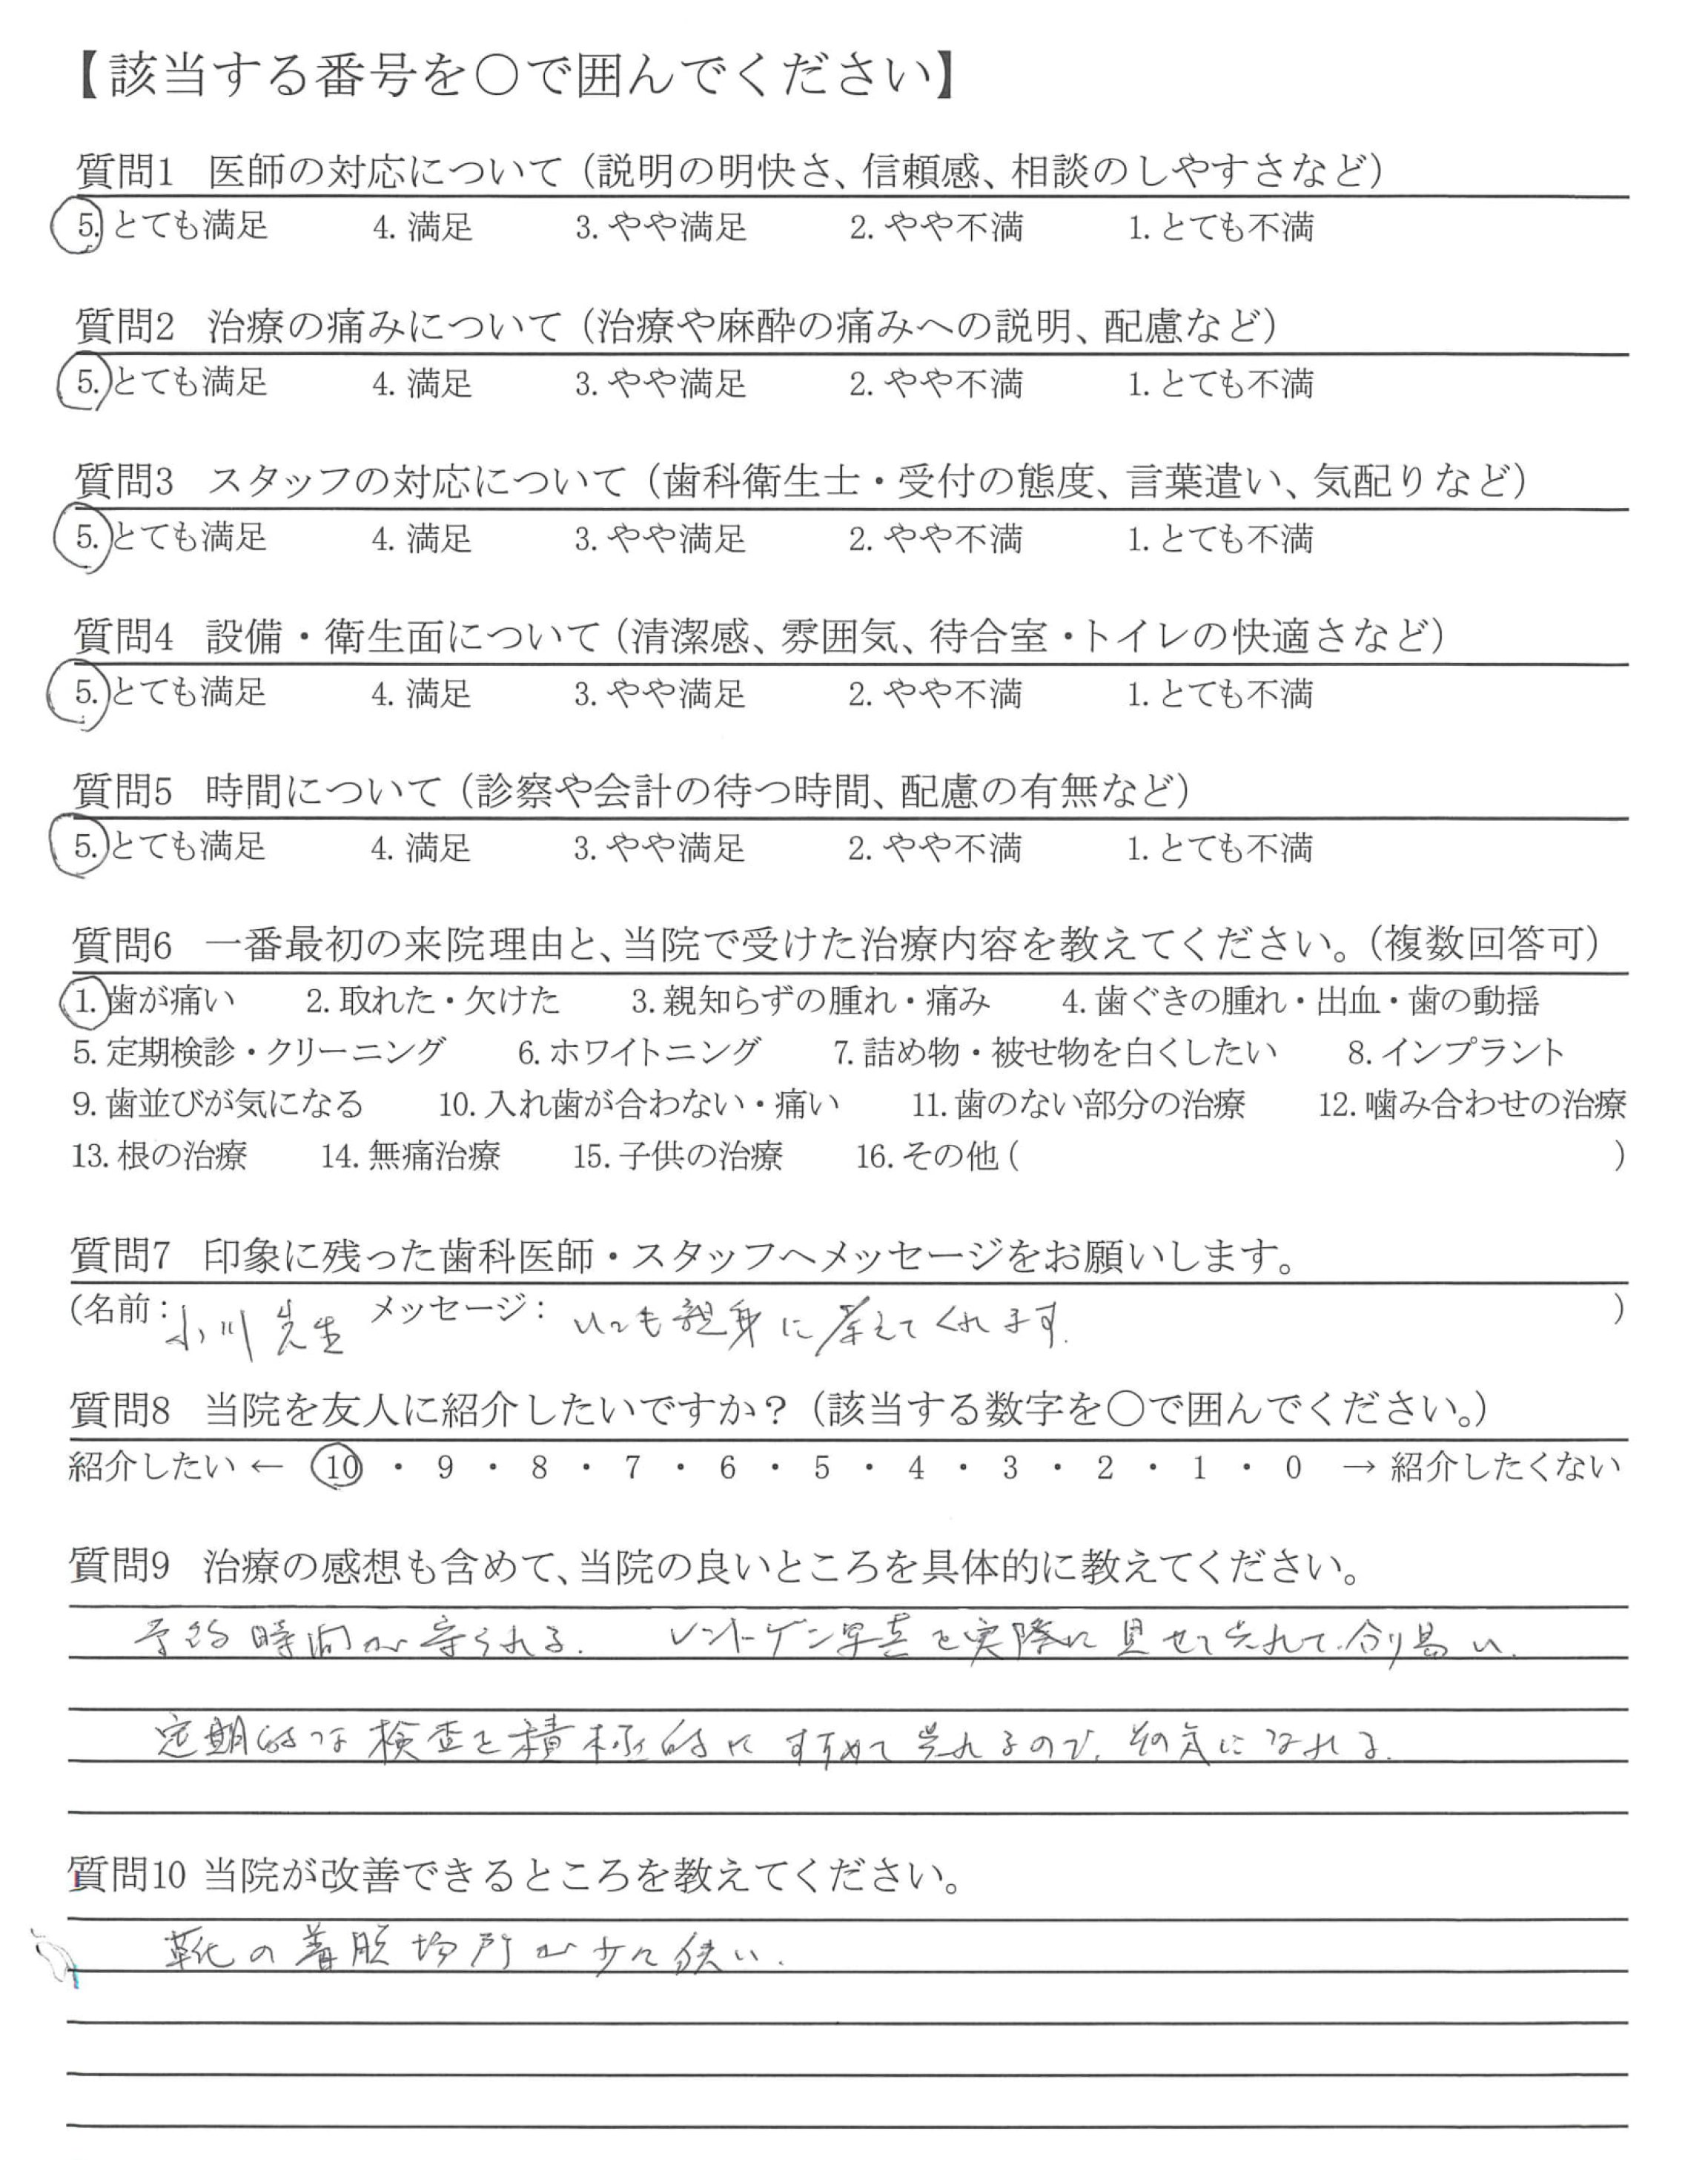 【該当する番号を○で囲んでください】
質問1 医師の対応について（説明の明快さ、信頼感、相談のしやすさなど）
5.とても満足 4.満足 3.やや満足 2.やや不満 1.とても不満
質問2 治療の痛みについて（治療や麻酔の痛みへの説明、配慮など）
5.とても満足 4.満足 3.やや満足 2.やや不満 1.とても不満
質問3 スタッフの対応について（歯科衛生士・受付の態度、言葉遣い、気配りなど）
5.とても満足 4.満足 3.やや満足 2.やや不満 1.とても不満
質問4 設備・衛生面について（清潔感、雰囲気、待合室・トイレの快適さなど）
5.とても満足 4.満足 3.やや満足 2.やや不満 1.とても不満
質問5 時間について（診察や会計の待つ時間、配慮の有無など）
5.とても満足 4.満足 3.やや満足 2.やや不満 1.とても不満
質問6 一番最初の来院理由と、当院で受けた治療内容を教えてください。（複数回答可）
1.歯が痛い 2.取れた・欠けた 3.親知らずの腫れ・痛み 4.歯ぐきの腫れ・出血・歯の動揺
5.定期検診・クリーニング 6.ホワイトニング 7.詰め物・被せ物を白くしたい 8.インプラント
9.歯並びが気になる 10.入れ歯が合わない・痛い 11.歯のない部分の治療 12.噛み合わせの治療
13.根の治療 14.無痛治療 15.子供の治療 16.その他（ ）
質問7 印象に残った歯科医師・スタッフへメッセージをお願いします。
（名前：小川先生 メッセージ：いつも親身に考えてくれます。）
質問8 当院を友人に紹介したいですか？（該当する数字を○で囲んでください。）
紹介したい ← 10 ・ 9 ・ 8 ・ 7 ・ 6 ・ 5 ・ 4 ・ 3 ・ 2 ・ 1 ・ 0 → 紹介したくない
質問9 治療の感想も含めて、当院の良いところを具体的に教えてください。
予約時間が守られる。 レントゲン写真を実際に見せて呉れて、分り易い。
定期的な検査を積極的にすすめて呉れるので、その気になれる。
質問10 当院が改善できるところを教えてください。
靴の着脱場所が少々狭い。